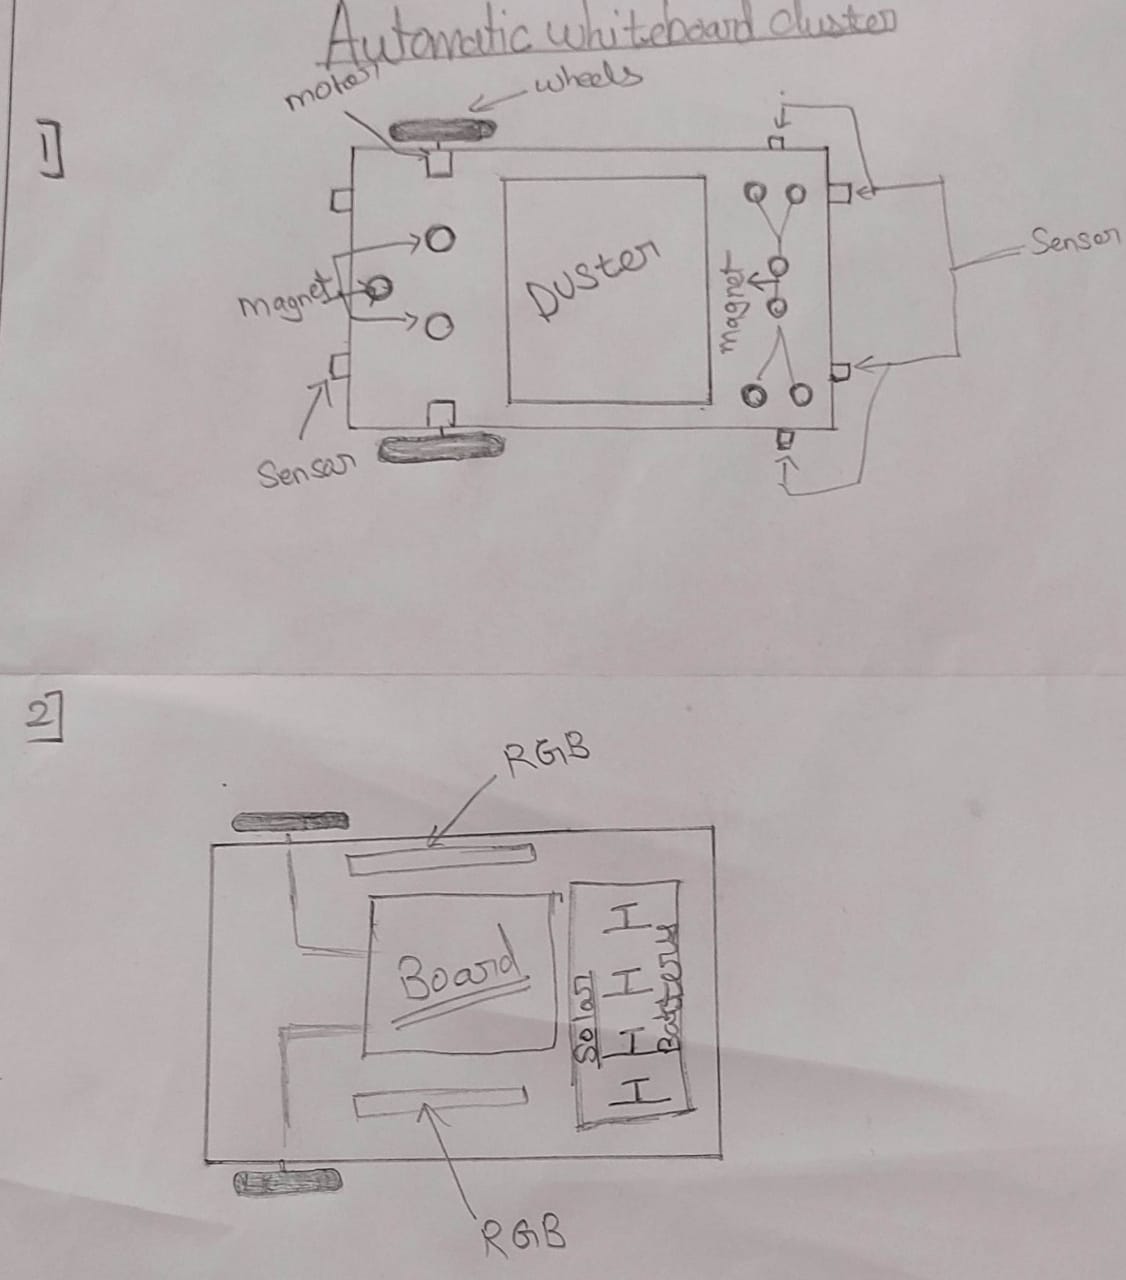 Automatic whiteboard duster
motor
wheels
1]
Sensor
magnet
DUSTER
magnet
Sensor
2]
RGB
Board
Solar
Battery
RGB